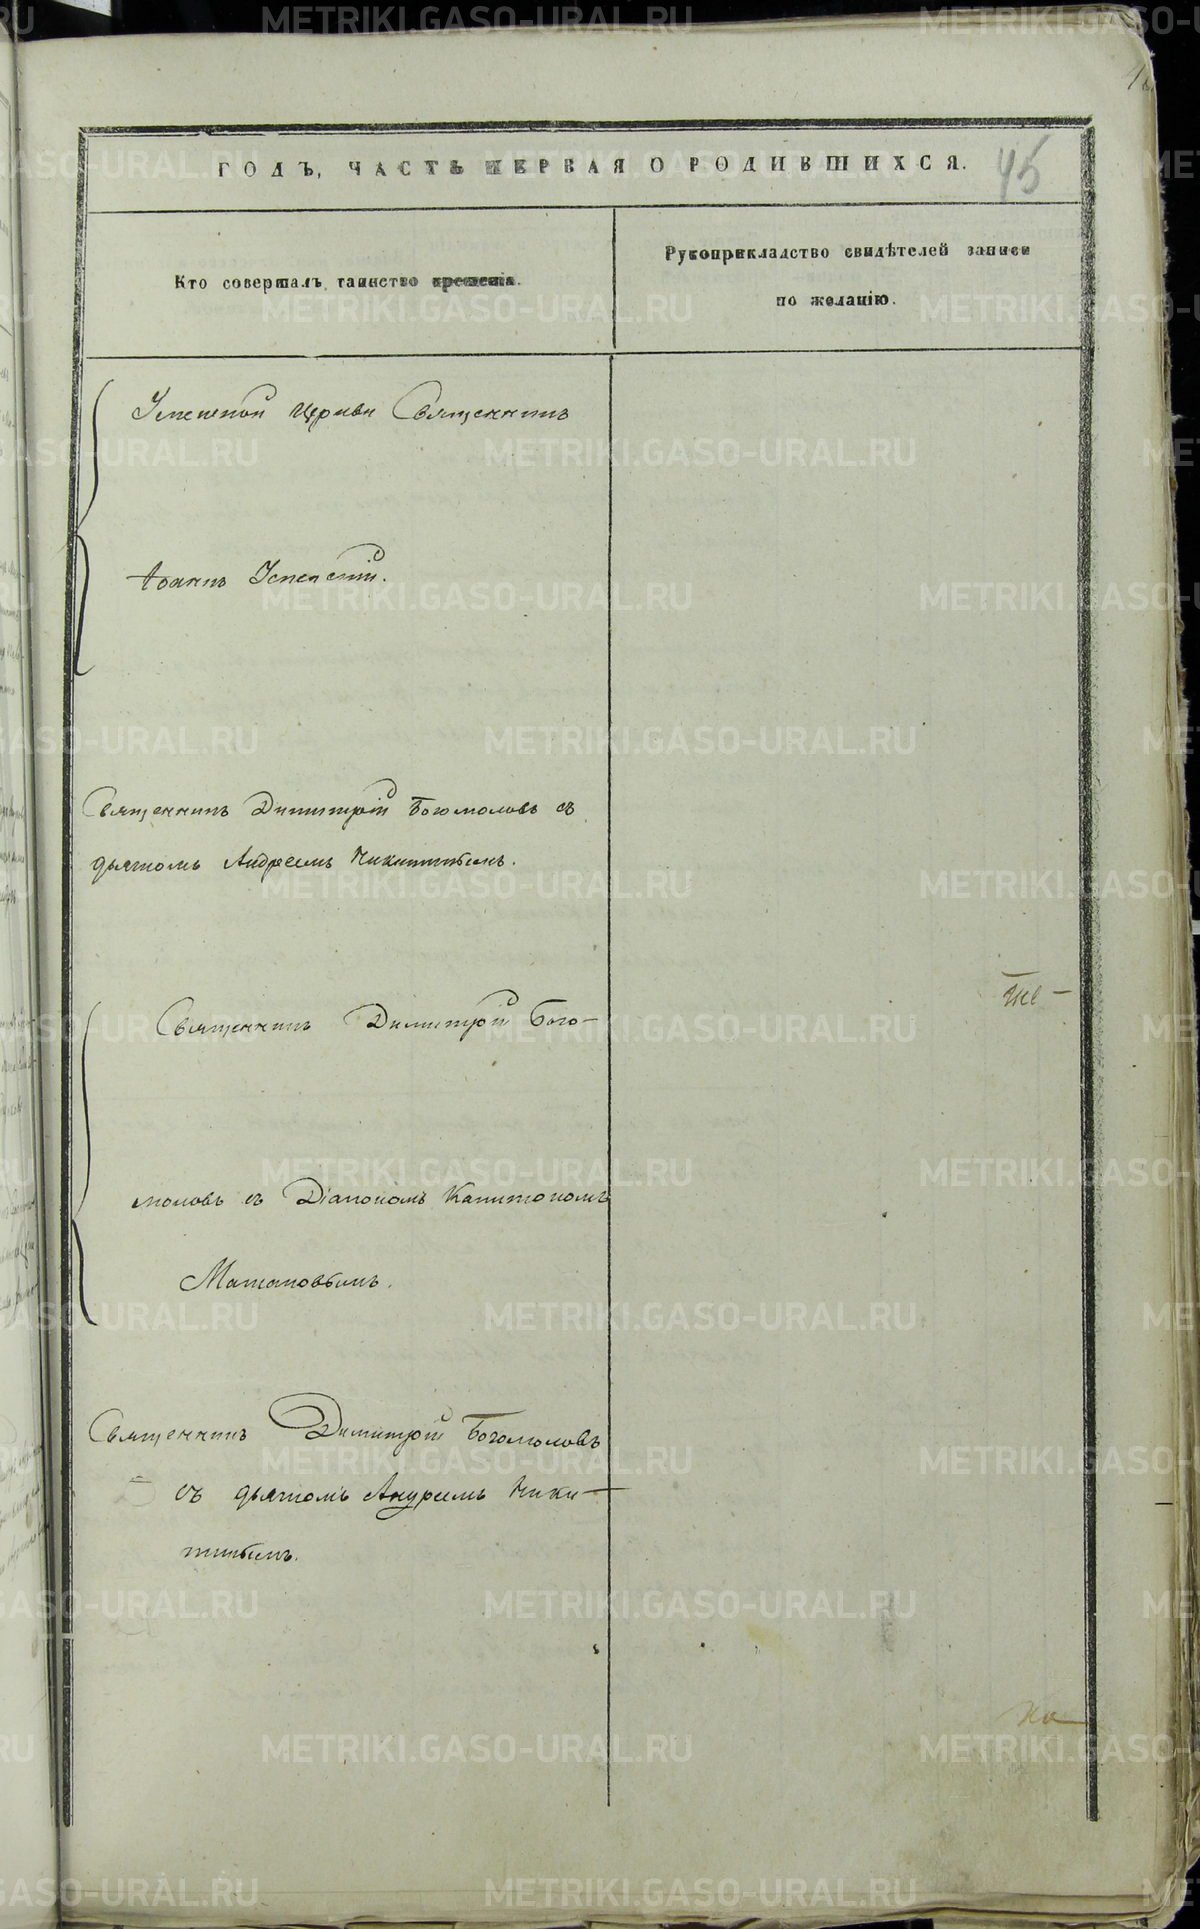 ГОДЪ, ЧАСТЬ ПЕРВАЯ О РОДИВШИХСЯ.
45
Кто совершалъ таинство крещенія.
Рукоприкладство свидѣтелей записи
по желанію.
церкви Священникъ
Іоаннъ Успенскій.
Священникъ Димитрій Богомоловъ съ
дьячкомъ Андреемъ Никитинымъ.
Священникъ Димитрій Бого-
моловъ съ Діакономъ Капитономъ
Священникъ Димитрій Богомоловъ
съ дьячкомъ Андреемъ Ники-
тинымъ.
METRIKI.GASO-URAL.RU